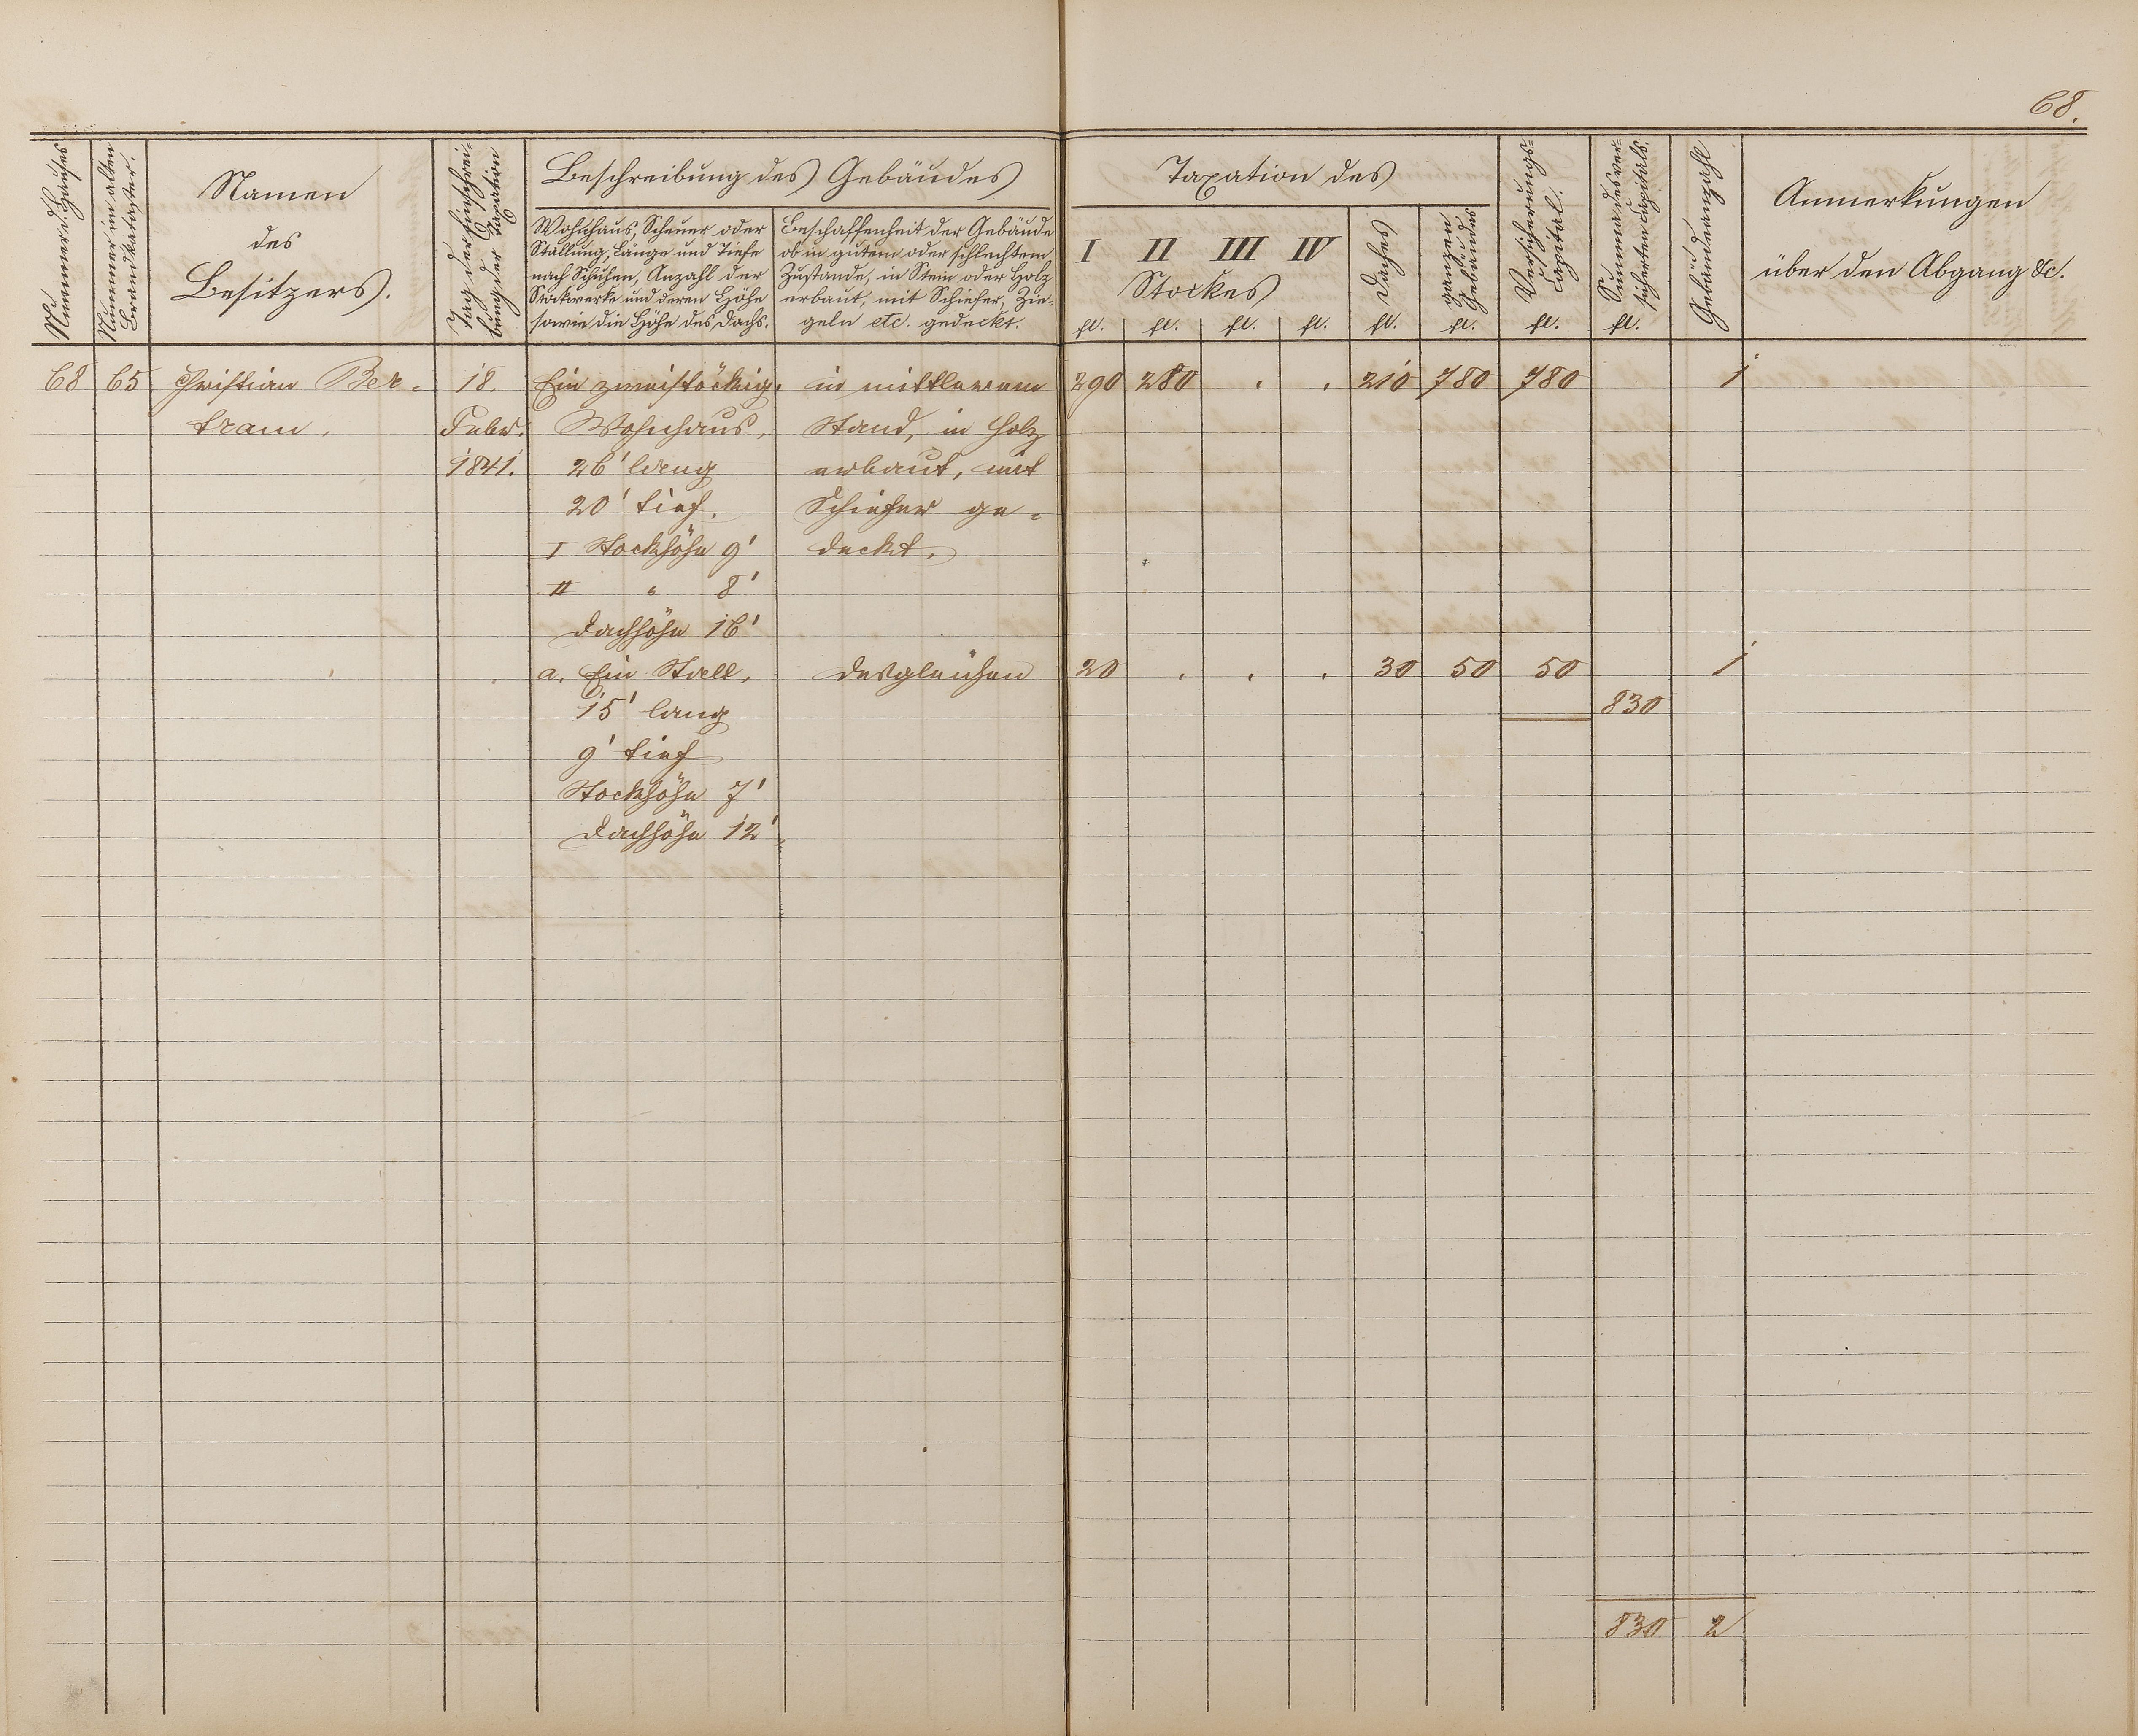 68.
Nummer d. Hauses
Nummer im alten
Brandkataster.
Namen
des
Besitzers.
Tag der Einschrei-
bung der Taxation
Beschreibung des Gebäudes
Wohnhaus, Scheuer oder
Stallung, Länge und Tiefe
nach Schuhen, Anzahl der
Stockwerke und deren Höhe
sowie die Höhe des Dachs.
Beschaffenheit der Gebäude
ob in gutem oder schlechtem
Zustande, in Stein oder Holz
erbaut, mit Schiefer, Zie-
geln etc. gedeckt.
Taxation des
I II III IV
Stockes
Daches
ganzen
Gebäudes
Versicherungs-
Capital.
Summa des ver-
sicherten Capitals.
Gebäudeanzahl
Anmerkungen
über den Abgang &c.
fl. fl. fl. fl. fl. fl. fl. fl.
68 65 Christian Ber- 18. Ein zweistöckig. in mittlerem 290 280 . . 210 780 780 1
tram. Febr. Wohnhaus, Stand, in Holz
1841. 26' lang erbaut, mit
20' tief. Schiefer ge-
I Stockhöhe 9' deckt.
II " 8'
Dachhöhe 16'
a. Ein Stall, desgleichen 20 . . . 30 50 50 1
15' lang 830
9' tief
Stockhöhe 7'
Dachhöhe 12'.
830 2